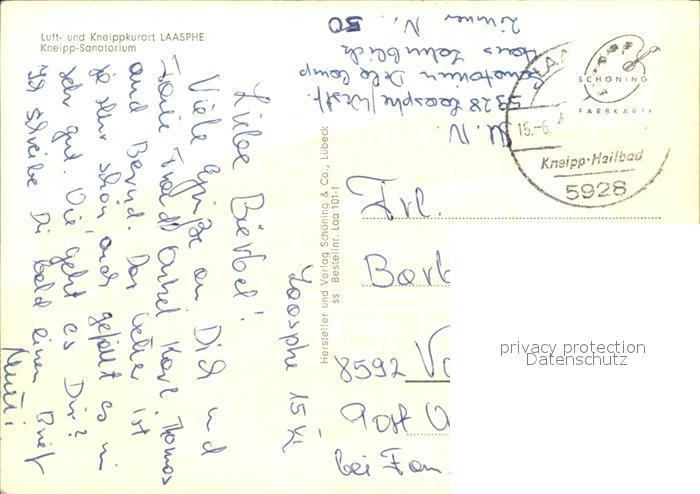 Luft- und Kneippkurort LAASPHE
Kneipp-Sanatorium
Laasphe 15.VI.
Liebe Bärbel!
Viele Grüße an Dich und
Tante Traudl Onkel Karl, Thomas
und Bernd. Das Wetter ist
ja sehr schön, auch gefällt es mir
sehr gut. Wie geht es Dir?
Ich schreibe Dir bald einen Brief
Mutti
5928 Laasphe/Westf.
Sanatorium Dele Camp
Haus
Zimmer Nr. 50
Hersteller und Verlag Schöning & Co., Lübeck
ss Bestellnr. Laa 101 f
SCHÖNING
FARBKARTE
LAA
15.-6.
Kneipp-Heilbad
5928
Frl.
Barb
8592
Post
bei Fam
privacy protection
Datenschutz